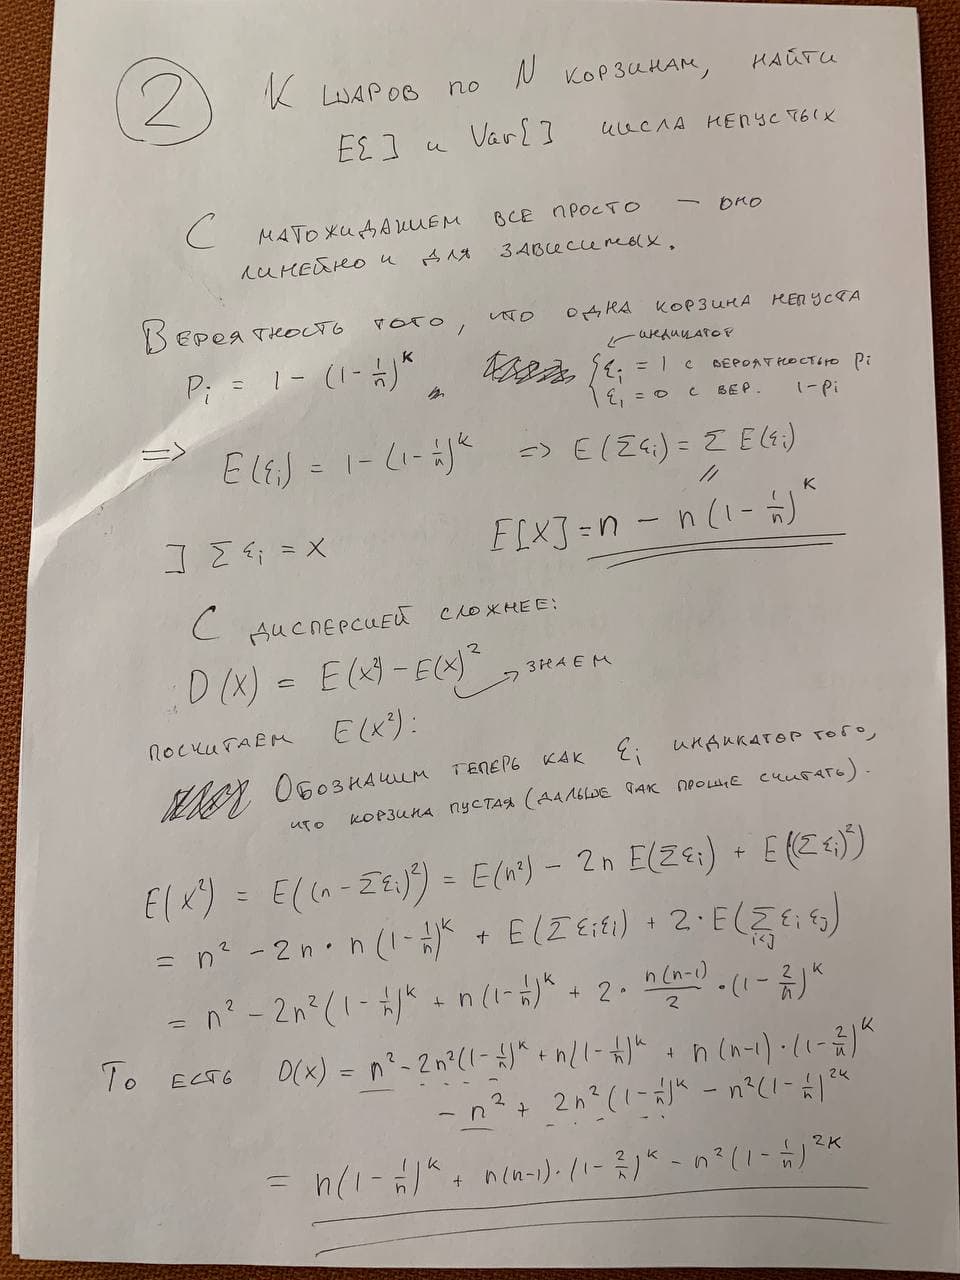 2
К шаров по N корзинам, найти
E[] и Var[] числа непустых
С матожиданием все просто — оно
линейно и для зависимых.
Вероятность того, что одна корзина непуста
индикатор
P_i = 1 - (1 - 1/n)^k
{ ξ_i = 1 с вероятностью p_i
ξ_i = 0 с вер. 1-p_i
=> E(ξ_i) = 1 - (1 - 1/n)^k => E(Σξ_i) = Σ E(ξ_i)
] Σ ξ_i = X
E[X] = n - n(1 - 1/n)^k
С дисперсией сложнее:
D(X) = E(X²) - E(X)² → знаем
посчитаем E(X²):
Обозначим теперь как ξ_i индикатор того,
что корзина пустая (дальше так проще считать).
E(X²) = E((n - Σξ_i)²) = E(n²) - 2n E(Σξ_i) + E((Σξ_i)²)
= n² - 2n · n(1 - 1/n)^k + E(Σ ξ_i ξ_i) + 2 · E(Σ_{i<j} ξ_i ξ_j)
= n² - 2n²(1 - 1/n)^k + n(1 - 1/n)^k + 2 · n(n-1)/2 · (1 - 2/n)^k
То есть D(X) = n² - 2n²(1 - 1/n)^k + n(1 - 1/n)^k + n(n-1) · (1 - 2/n)^k
- n² + 2n²(1 - 1/n)^k - n²(1 - 1/n)^2k
= n(1 - 1/n)^k + n(n-1) · (1 - 2/n)^k - n²(1 - 1/n)^2k